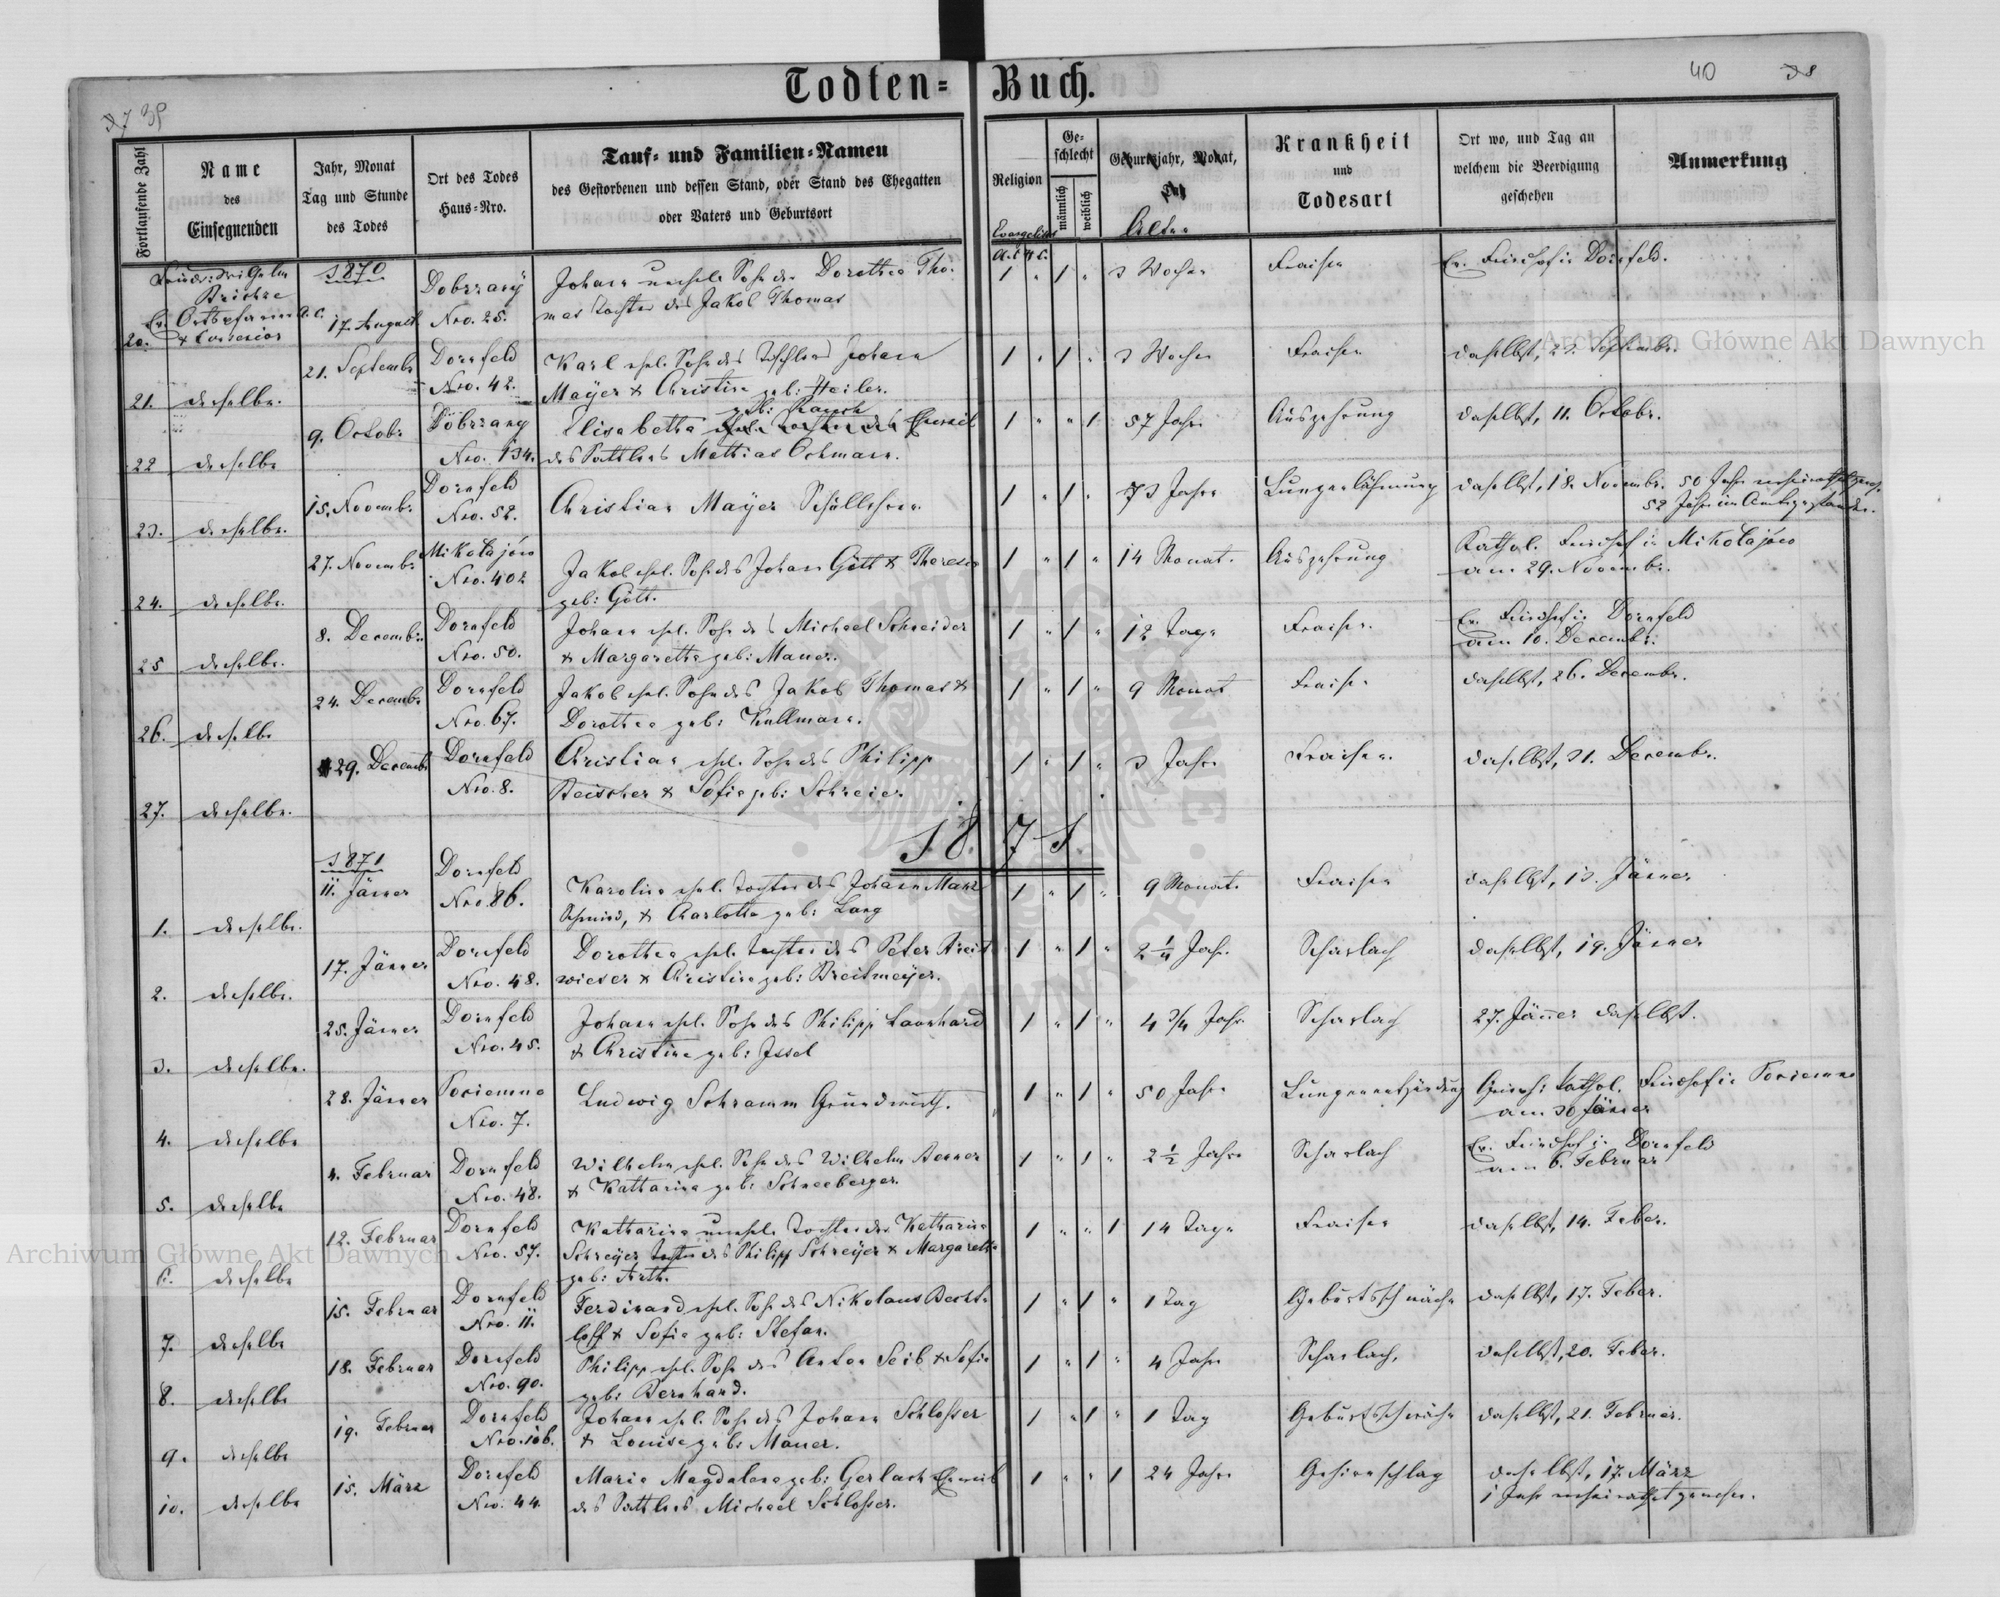 Todten= Buch.
37 39
40 38
Fortlaufende Zahl
Name
des
Einsegnenden
Jahr, Monat
Tag und Stunde
des Todes
Ort des Todes
Haus-Nro.
Tauf- und Familien-Namen
des Gestorbenen und dessen Stand, oder Stand des Ehegatten
oder Vaters und Geburtsort
Religion
Evangelisch
A. C. H. C.
Geschlecht
männlich
weiblich
Geburtsjahr, Monat,
Tag
Alter
Krankheit
und
Todesart
Ort wo, und Tag an
welchem die Beerdigung
geschehen
Anmerkung
Ev. Ortspfarrer A. C.
& Consenior
20. 1870 17. August Dobrzany Nro. 25. Johann unehel. Sohn der Dorothea Tho-
mas Tochter des Jakob Thomas 1 " 1 " 3 Wochen Fraisen Ev. Friedhof in Dornfeld.
21. derselbe. 21. Septembr Dornfeld Nro. 42. Karl ehel. Sohn des Tischlers Johann
Mayer & Christine geb: Heiler. 1 " 1 " 3 Wochen Fraisen daselbst, 23. Septembr.
22 derselbe 9. Octobr Dobrzany Nro. 134. Elisabetha geb: Rausch Eheweib
des Sattlers Mathias Ochmann. 1 " " 1 57 Jahre Auszehrung daselbst, 11. Octobr.
23. derselbe. 15. Novembr. Dornfeld Nro. 52. Christian Mayer Schullehrer 1 " 1 " 73 Jahre Lungenlähmung daselbst, 18. Novembr. 50 Jahre verheirathet gewes.
52 Jahre im Amte gestanden.
24. derselbe. 27. Novembr. Mikołajów Nro. 402 Jakob ehel. Sohn des Johann Gött & Theresia
geb: Gött. 1 " 1 " 14 Monat. Auszehrung Kathol. Friedhof in Mikołajów
am 29. Novembr.
25 derselbe. 8. Decembr. Dornfeld Nro. 50. Johann ehel. Sohn des Michael Schneider
& Margaretha geb: Mauer. 1 " 1 " 12 Tage Fraisen. Ev. Friedhof in Dornfeld
am 10. Decembr:
26. derselbe 24. Decembr. Dornfeld Nro. 67. Jakob ehel. Sohn des Jakob Thomas &
Dorothea geb: Kullmann. 1 " 1 " 9 Monat Fraisen daselbst, 26. Decembr.
27. derselbe. 29. Decembr Dornfeld Nro. 8. Christian ehel. Sohn des Philipp
Reischer & Sofie geb: Schreier. 1 " 1 " 3 Jahre Fraisen. daselbst, 31. Decembr.
1871.
1. derselbe. 1871 11. Jänner Dornfeld Nro. 86. Karoline ehel. Tochter des Johann Manz
Schmied, & Charlotte geb: Lang 1 " 1 " 9 Monate Fraisen daselbst, 13. Jänner
2. derselbe. 17. Jänner Dornfeld Nro. 48. Dorothea ehel. Tochter des Peter Breit-
wieser & Christine geb: Breitmeyer. 1 " 1 " 2 1/4 Jahr. Scharlach daselbst, 19. Jänner
3. derselbe. 25. Jänner Dornfeld Nro. 45. Johann ehel. Sohn des Philipp Laonhard
& Christine geb: Issel 1 " 1 " 4 3/4 Jahr Scharlach 27. Jänner daselbst.
4. derselbe 28. Jänner Nro. 7. Ludwig Schramm Grundwirth. 1 " 1 " 50 Jahre Lungenentzündung kathol. Friedhof in
am 30 Jänner
5. derselbe 4. Februar Dornfeld Nro. 48. Wilhelm ehel. Sohn des Wilhelm
& Katharine geb: Schneeberger. 1 " 1 " 2 1/2 Jahre Scharlach Ev. Friedhof in Dornfeld
am 6. Februar
6. derselbe 12. Februar Dornfeld Nro. 57. Katharine unehel. Tochter der Katharine
Schreyer Tochter des Philipp Schreyer & Margaretha
geb: Arth. 1 " " 1 14 Tage Fraisen daselbst, 14. Feber.
7. derselbe 15. Februar Dornfeld Nro. 11. Ferdinand ehel. Sohn des Nikolaus Becht-
loff & Sofie geb: Stefan. 1 " 1 " 1 Tag Geburtsschwäche daselbst, 17. Feber.
8. derselbe 18. Februar Dornfeld Nro. 90. Philipp ehel. Sohn des Anton Seib & Sofie
geb: Bernhard. 1 " 1 " 4 Jahre Scharlach, daselbst, 20. Feber.
9. derselbe 19. Februar Dornfeld Nro. 106. Johann ehel. Sohn des Johann Schlosser
& Louise geb: Mauer. 1 " 1 " 1 Tag Geburtsschwäche daselbst, 21. Februar.
10. derselbe 15. März Dornfeld Nro. 44. Maria Magdalena geb: Gerlach Eheweib
des Sattlers Michael Schlosser. 1 " " 1 24 Jahre Gehirnschlag daselbst, 17. März
1 Jahr verheirathet gewesen.
Archiwum Główne Akt Dawnych
Archiwum Główne Akt Dawnych